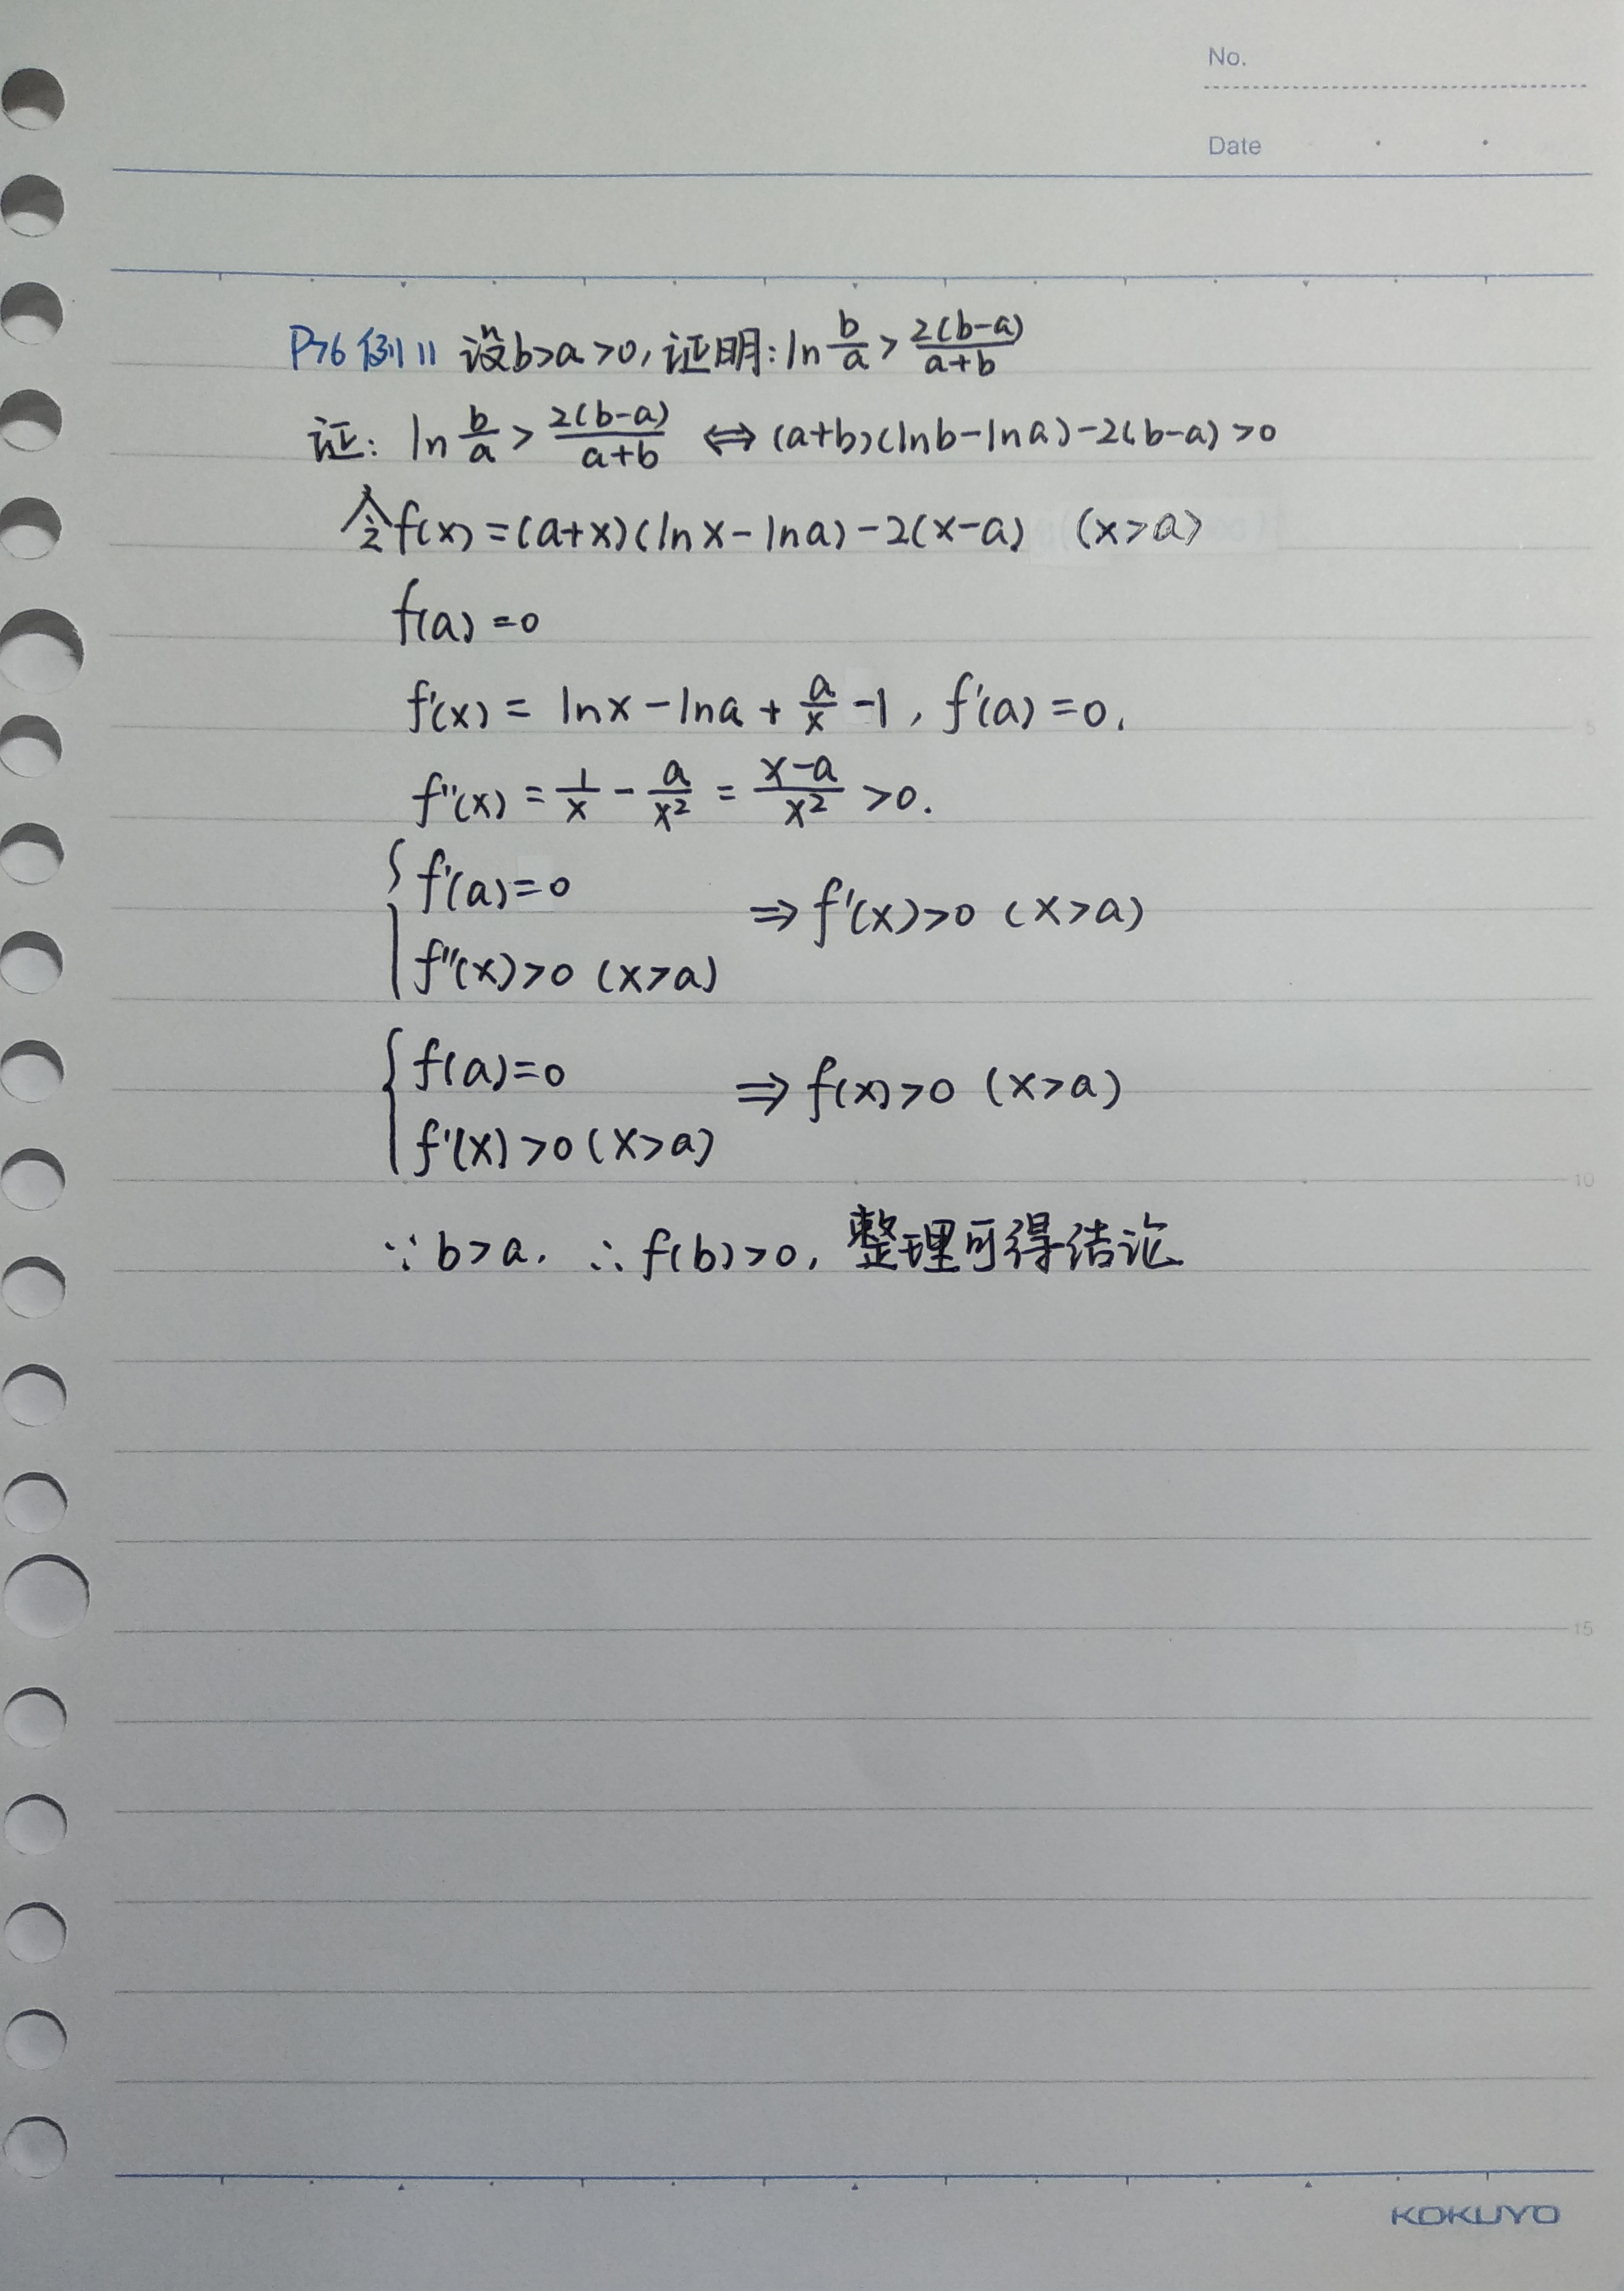 No.
Date
P76 例11 设b>a>0,证明:ln b/a > 2(b-a)/(a+b)
证: ln b/a > 2(b-a)/(a+b) ⇔ (a+b)(lnb-lna)-2(b-a)>0
令f(x)=(a+x)(lnx-lna)-2(x-a) (x>a)
f(a)=0
f'(x)= lnx-lna+a/x-1, f'(a)=0.
5
f''(x)=1/x-a/x²=(x-a)/x²>0.
{ f'(a)=0
⇒f'(x)>0 (x>a)
f''(x)>0 (x>a)
{ f(a)=0
⇒f(x)>0 (x>a)
f'(x)>0(x>a)
10
∵b>a. ∴f(b)>0, 整理可得结论
15
KOKUYO